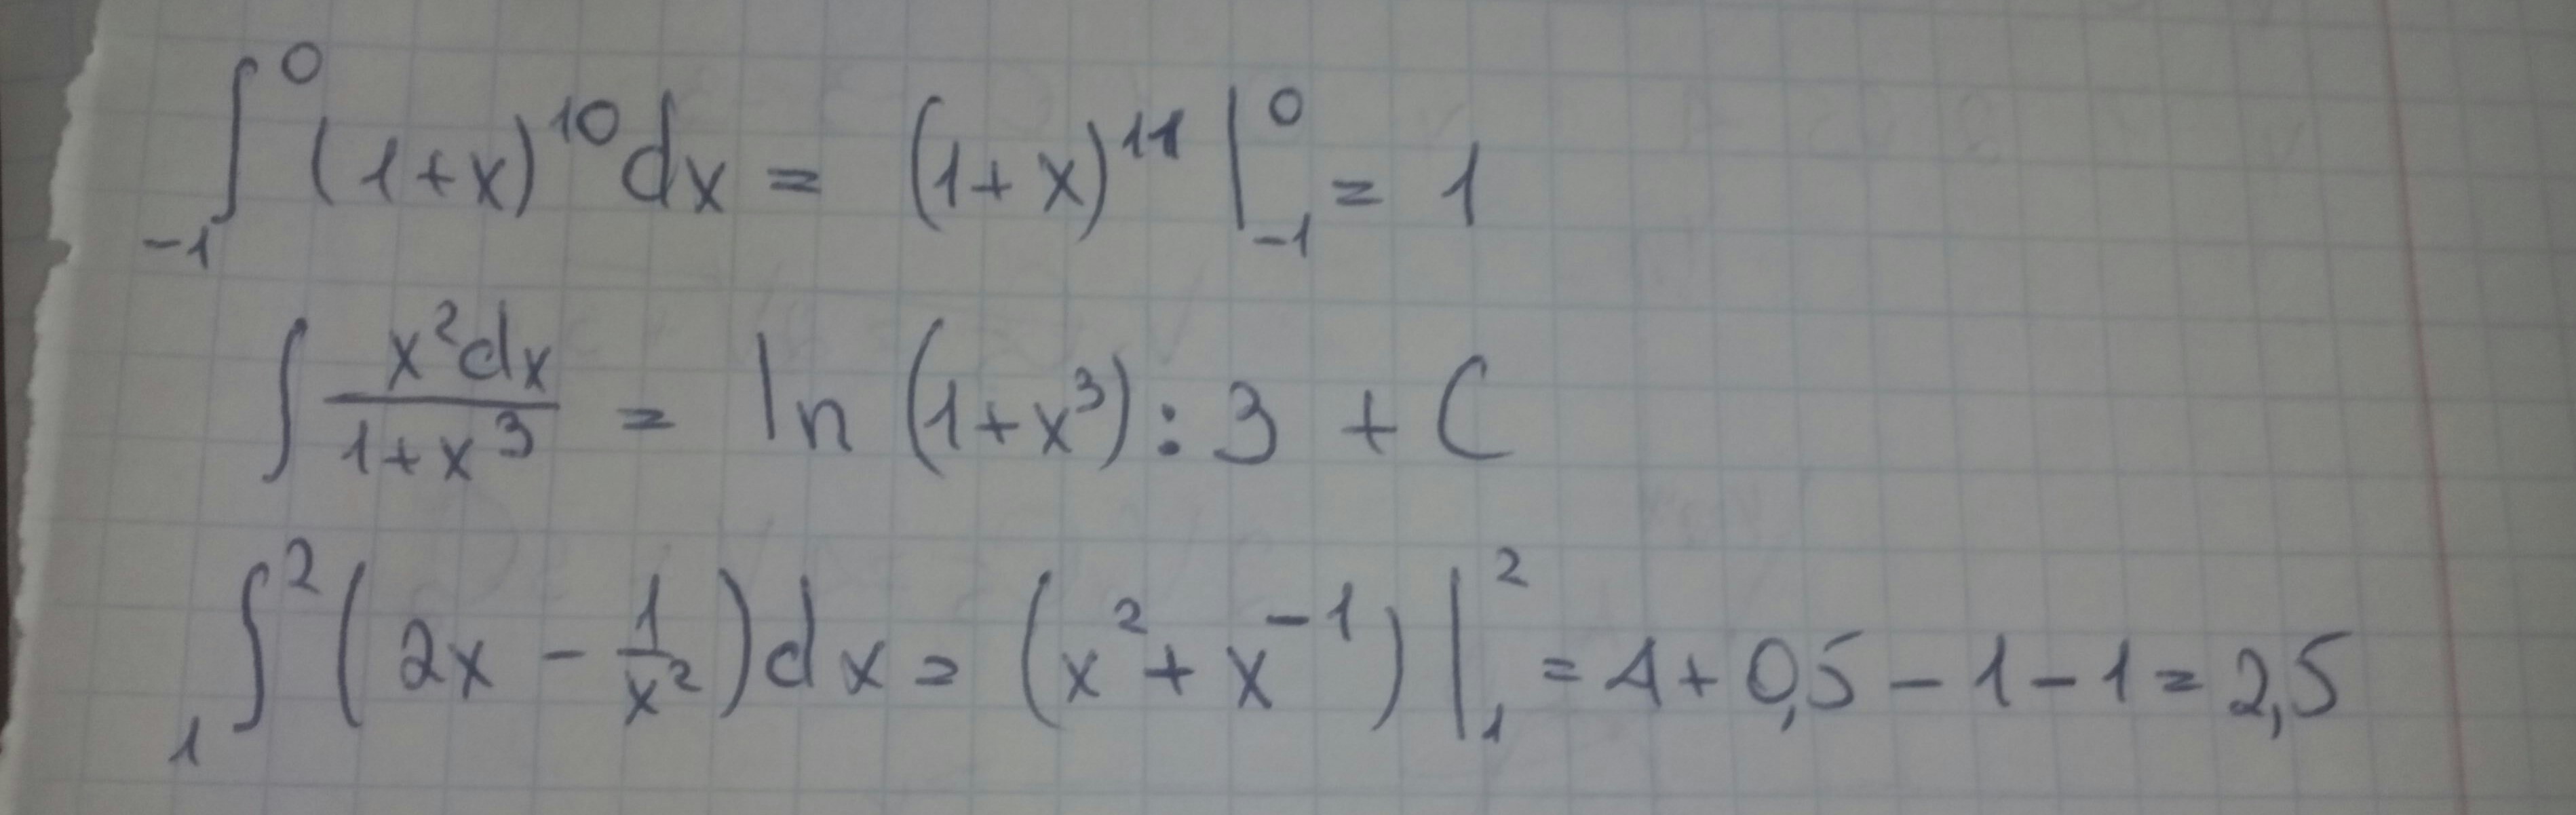 ∫_{-1}^{0} (1+x)^{10} dx = (1+x)^{11} |_{-1}^{0} = 1
∫ \frac{x^2 dx}{1+x^3} = ln (1+x^3) : 3 + C
∫_{1}^{2} (2x - \frac{1}{x^2}) dx = (x^2 + x^{-1}) |_{1}^{2} = 4 + 0,5 - 1 - 1 = 2,5